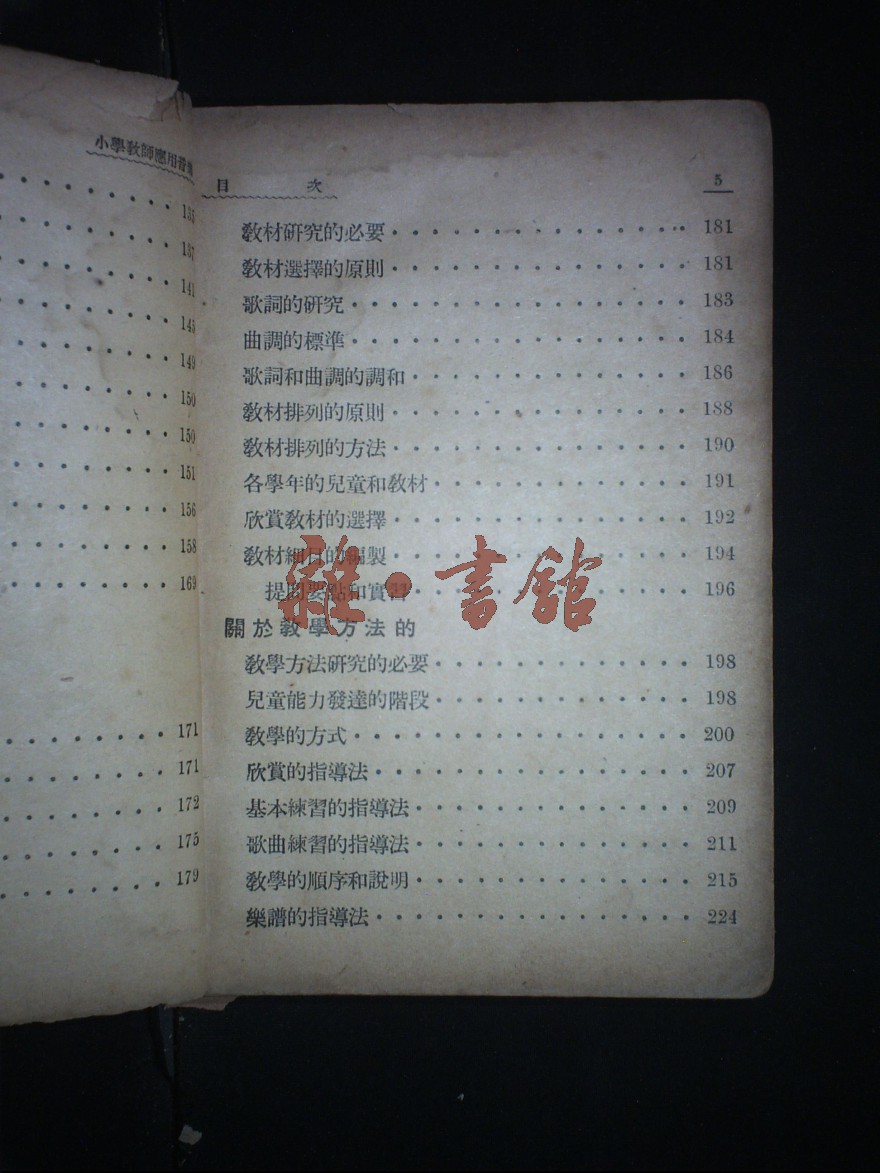 小學教師應用音樂
135
137
141
143
149
150
150
151
156
158
169
171
171
172
175
179
目 次 5
教材研究的必要 181
教材選擇的原則 181
歌詞的研究 183
曲調的標準 184
歌詞和曲調的調和 186
教材排列的原則 188
教材排列的方法 190
各學年的兒童和教材 191
欣賞教材的選擇 192
教材細目的編製 194
提問要點和實習 196
關於教學方法的
教學方法研究的必要 198
兒童能力發達的階段 198
教學的方式 200
欣賞的指導法 207
基本練習的指導法 209
歌曲練習的指導法 211
教學的順序和說明 215
樂譜的指導法 224
雜·書館